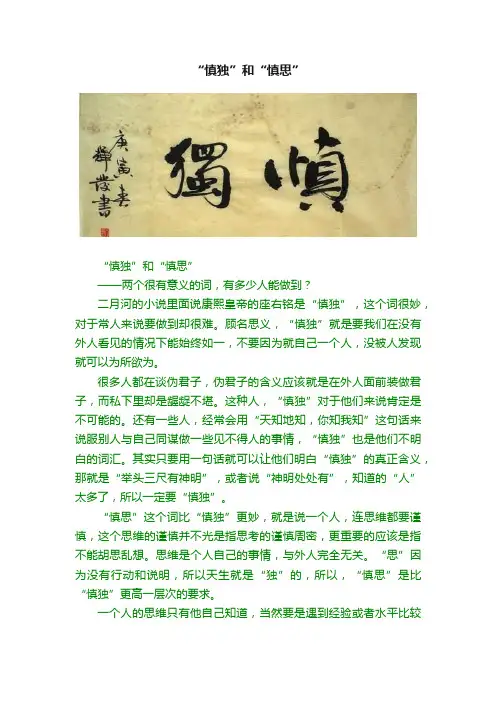 “慎独”和“慎思”
慎獨
庚寅春
書
“慎独”和“慎思”
——两个很有意义的词，有多少人能做到？
二月河的小说里面说康熙皇帝的座右铭是“慎独”，这个词很妙，
对于常人来说要做到却很难。顾名思义，“慎独”就是要我们在没有
外人看见的情况下能始终如一，不要因为就自己一个人，没被人发现
就可以为所欲为。
很多人都在谈伪君子，伪君子的含义应该就是在外人面前装做君
子，而私下里却是龌龊不堪。这种人，“慎独”对于他们来说肯定是
不可能的。还有一些人，经常会用“天知地知，你知我知”这句话来
说服别人与自己同谋做一些见不得人的事情，“慎独”也是他们不明
白的词汇。其实只要用一句话就可以让他们明白“慎独”的真正含义，
那就是“举头三尺有神明”，或者说“神明处处有”，知道的“人”
太多了，所以一定要“慎独”。
“慎思”这个词比“慎独”更妙，就是说一个人，连思维都要谨
慎，这个思维的谨慎并不光是指思考的谨慎周密，更重要的应该是指
不能胡思乱想。思维是个人自己的事情，与外人完全无关。“思”因
为没有行动和说明，所以天生就是“独”的，所以，“慎思”是比
“慎独”更高一层次的要求。
一个人的思维只有他自己知道，当然要是遇到经验或者水平比较